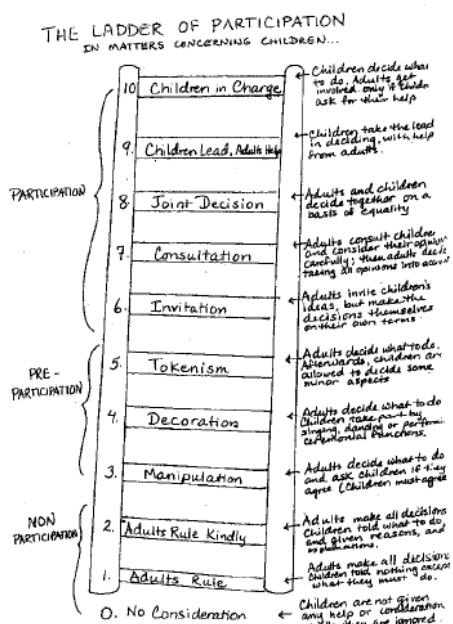 THE LADDER OF PARTICIPATION
IN MATTERS CONCERNING CHILDREN...
10 Children in Charge
Children decide what
to do. Adults get
involved only if childre
ask for their help
9. Children Lead, Adults Help
Children take the lead
in deciding, with help
from adults.
PARTICIPATION
8. Joint Decision
Adults and children
decide together on a
basis of equality
7. Consultation
Adults consult children
and consider their opinion
carefully; then adults decide
taking all opinions into
6. Invitation
Adults invite children's
ideas, but make the
decisions themselves
on their own terms.
PRE-
PARTICIPATION
5. Tokenism
Adults decide what to do.
Afterwards, children are
allowed to decide some
minor aspects
4. Decoration
Adults decide what to do
Children take part by
singing, dancing or
ceremonial functions.
3. Manipulation
Adults decide what to do
and ask children if they
agree (Children must agree
NON
PARTICIPATION
2. Adults Rule Kindly
Adults make all decisions
Children told what to do,
and given reasons, and
explanations.
1. Adults Rule
Adults make all decisions
Children told nothing except
what they must do.
0. No Consideration
Children are not given
any help or consideration
they are ignored